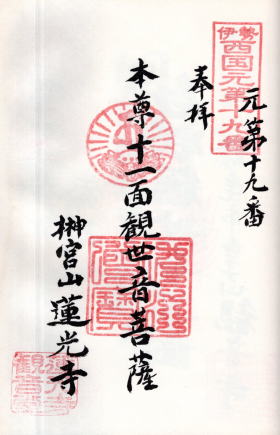 伊勢
西国元第十九番
元第十九番
奉拝
本尊十一面観世音菩薩
榊宮山蓮光寺